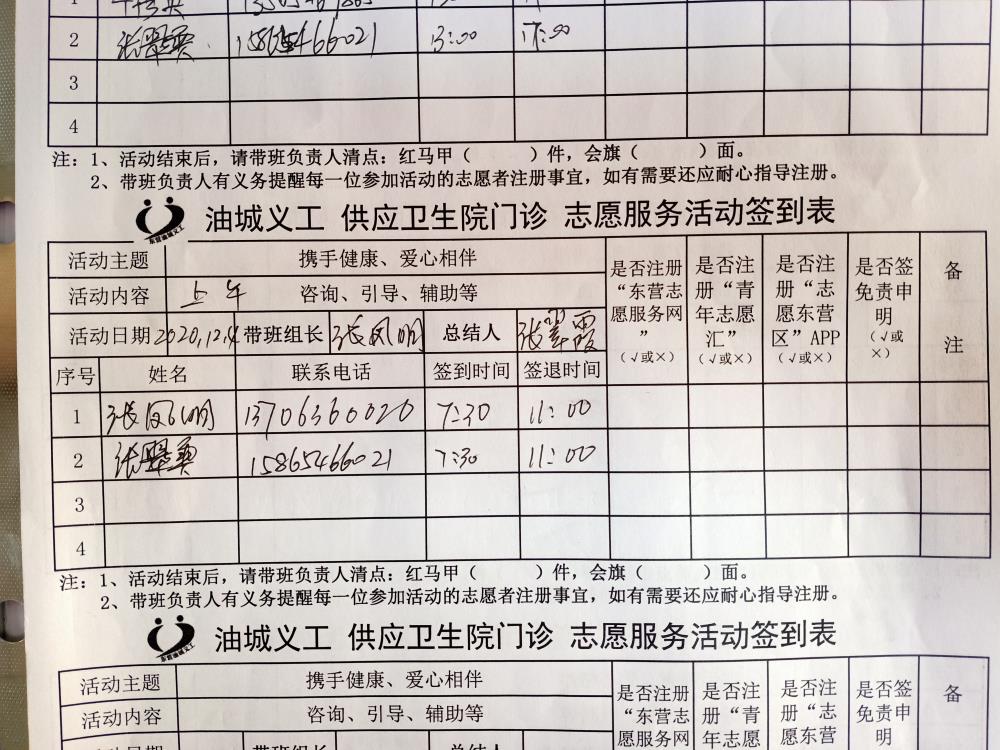 2 张翠 15865466021 13:00 17:00
3
4
注：1、活动结束后，请带班负责人清点：红马甲（ ）件，会旗（ ）面。
2、带班负责人有义务提醒每一位参加活动的志愿者注册事宜，如有需要还应耐心指导注册。
东营油城义工
油城义工 供应卫生院门诊 志愿服务活动签到表
活动主题 携手健康、爱心相伴
活动内容 上午 咨询、引导、辅助等
活动日期 2020.12.4 带班组长 张凤明 总结人 张翠霞
是否注册“东营志愿服务网”（√或×） 是否注册“青年志愿汇”（√或×） 是否注册“志愿东营区”APP（√或×） 是否签免责申明（√或×） 备注
序号 姓名 联系电话 签到时间 签退时间
1 张凤明 13706360020 7:30 11:00
2 张翠 15865466021 7:30 11:00
3
4
注：1、活动结束后，请带班负责人清点：红马甲（ ）件，会旗（ ）面。
2、带班负责人有义务提醒每一位参加活动的志愿者注册事宜，如有需要还应耐心指导注册。
东营油城义工
油城义工 供应卫生院门诊 志愿服务活动签到表
活动主题 携手健康、爱心相伴
活动内容 咨询、引导、辅助等
是否注册“东营志愿服务网 是否注册“青年志愿 是否注册“志愿东营 是否签免责申明 备
活动日期 带班组长 总结人